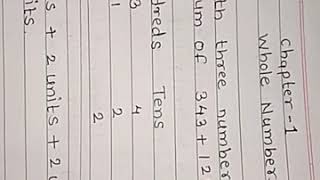 Chapter-1
Whole Number
th three number
um of 343 + 12
dreds Tens
3 4
1 2
2
s + 2 units + 2 u
its.